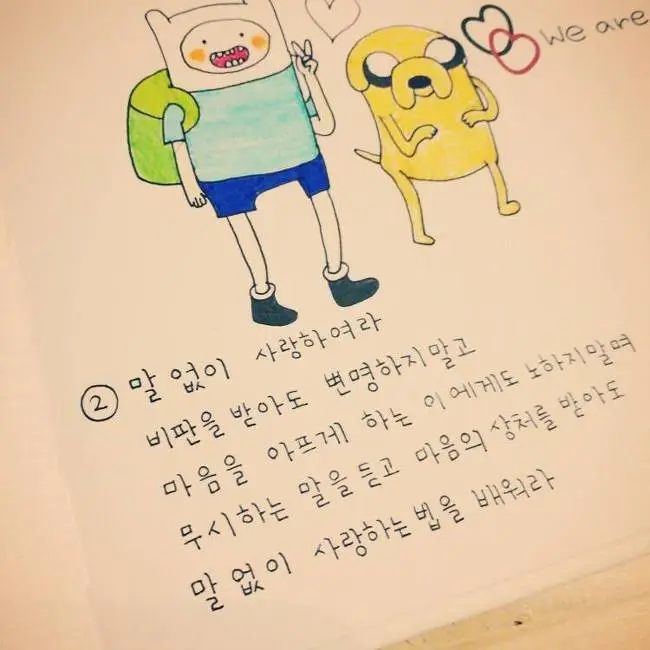 we are
② 말 없이 사랑하여라
비판을 받아도 변명하지말고
마음을 아프게 하는 이에게도 노하지말며
무시하는 말을 듣고 마음의 상처를 받아도
말 없이 사랑하는 법을 배워라